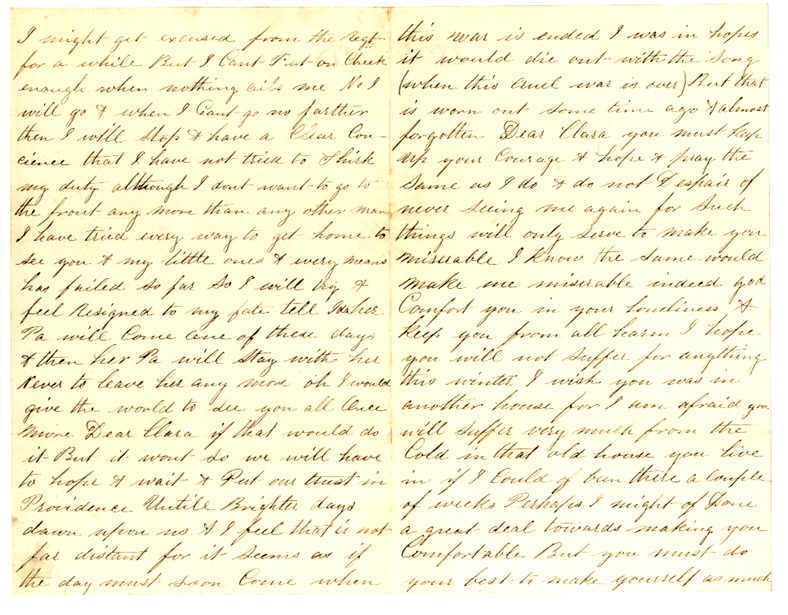 I might get excused from the regt
for a while But I Cant Put on Cheek
enough when nothing ails me No I
will go & when I cant go no farther
then I will stop & have a Clear Con-
cience that I have not tried to Shirk
my duty although I dont want to go to
the front any more than any other man
I have tried every way to get home to
see you & my little ones & every means
has failed so far So I will try &
feel Resigned to my fate tell Ida her
Pa will Come one of these days
& then her Pa will Stay with her
Never to leave her any more oh I would
give the world to see you all Once
more Dear Clara if that would do
it But it wont so we will have
to hope & wait & Put our trust in
Providence Untill Brighter days
dawn upon us & I feel that is not
far distant for it seems as if
the day must soon Come when
this war is ended I was in hopes
it would die out with the song
(when this cruel war is over) But that
is worn out some time ago & almost
forgotten Dear Clara you must keep
up your Courage & hope & pray the
same as I do & do not Despair of
never seeing me again for Such
things will only serve to make you
miserable I Know the same would
make me miserable indeed god
Comfort you in your loneliness &
keep you from all harm I hope
you will not suffer for anything
this winter I wish you was in
another house for I am afraid you
will suffer very much from the
Cold in that old house you live
in if I Could of bun there a couple
of weeks Perhaps I might of Done
a great deal towards making you
Comfortable But you must do
your best to make yourself as much